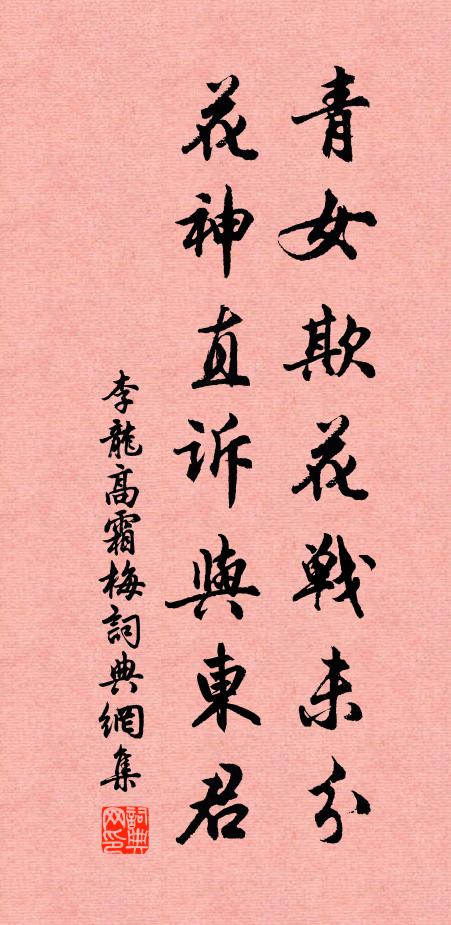 青女欺花戰未分
花神直訴與東君
李龍高霜梅詞典網集
詞典網印